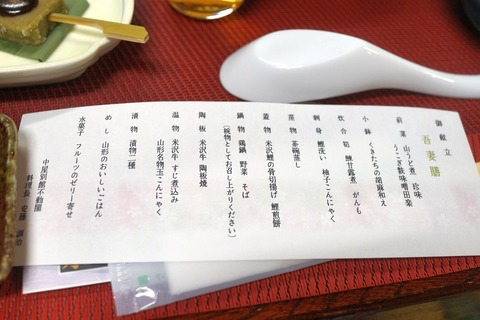 御献立
吾妻膳
前菜 山うど煮 珍味
うこぎ麩味噌田楽
小鉢 くきたちの胡麻和え
炊合 筍 鰊甘露煮 がんも
刺身 鯉洗い 柚子こんにゃく
蒸物 茶碗蒸し
蓋物 米沢鯉の骨切揚げ 鯉煎餅
鍋物 鶏鍋 野菜 そば
(椀物としてお召し上がりください)
陶板 米沢牛 陶板焼
温物 米沢牛 すじ煮込み
山形名物玉こんにゃく
漬物 漬物二種
めし 山形のおいしいごはん
水菓子 フルーツのゼリー寄せ
中屋別館不動閣
料理長